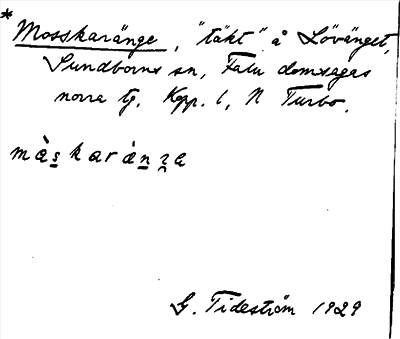 * Mosskaränge, "täkt" å Lövänget,
Sundborns sn, Falu domsagas
norra tg, Kopp. l, N Turbo.
màskaránza
G. Tideström 1929